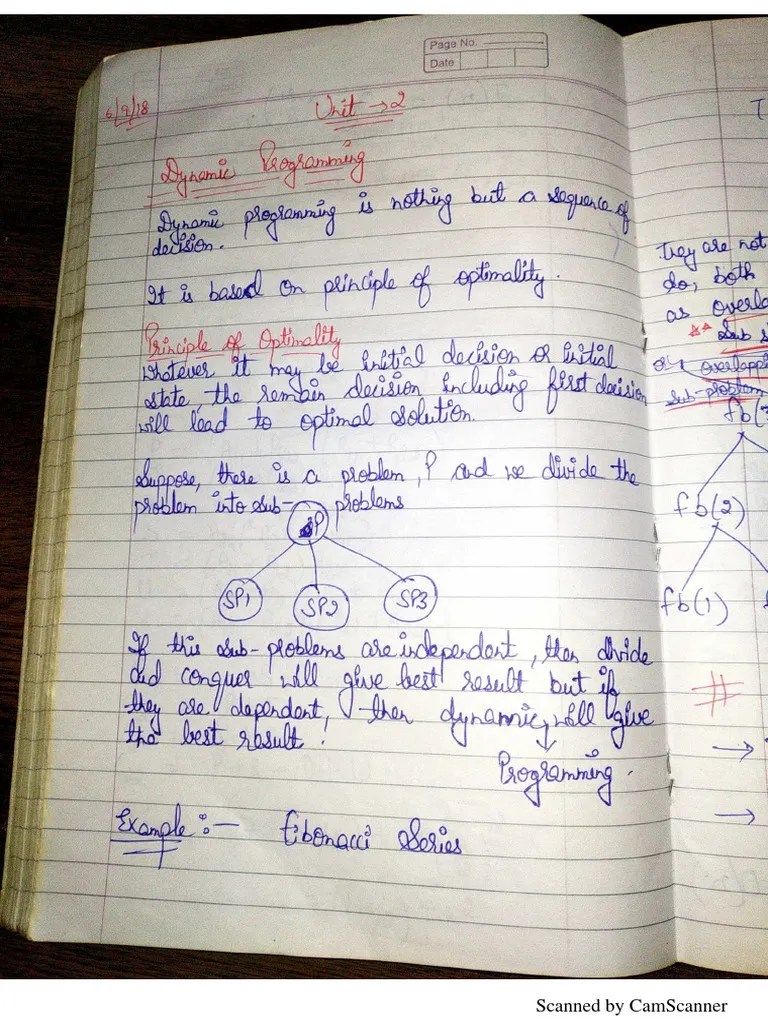 Page No.
Date
6/9/18
Unit → 2
Dynamic Programming
Dynamic programming is nothing but a sequence of
decision.
It is based on principle of optimality.
Principle of Optimality
Whatever it may be initial decision or initial
state, the remain decision including first decision
will lead to optimal solution.
Suppose, there is a problem, P and we divide the
problem into sub- problems
P
SP1 SP2 SP3
If this sub-problems are independent, then divide
and conquer will give best result but if
they are dependent, then dynamic will give
the best result!
Programming.
Example :- Fibonacci Series
They are not
do, both
as overla
** Sub s
or overlappi
sub-problem
fb(3
fb(2)
fb(1)
#
→
→
Scanned by CamScanner